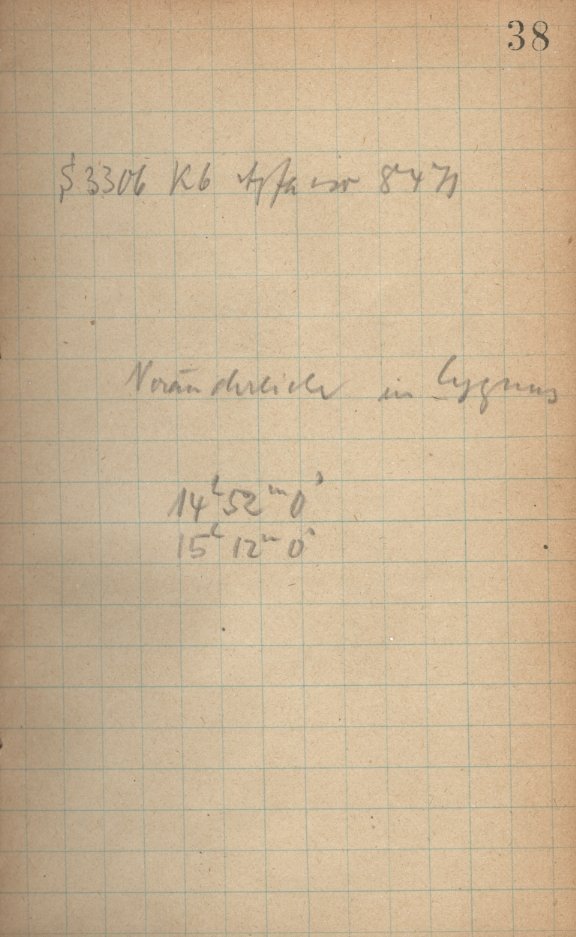 38
3306 Kb 8471
Veränderliche in Cygnus
14h 52m 0s
15h 12m 0s